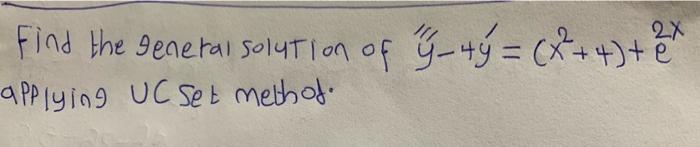 Find the general solution of y''' - 4y' = (x² + 4) + e^2x
applying UC set method.